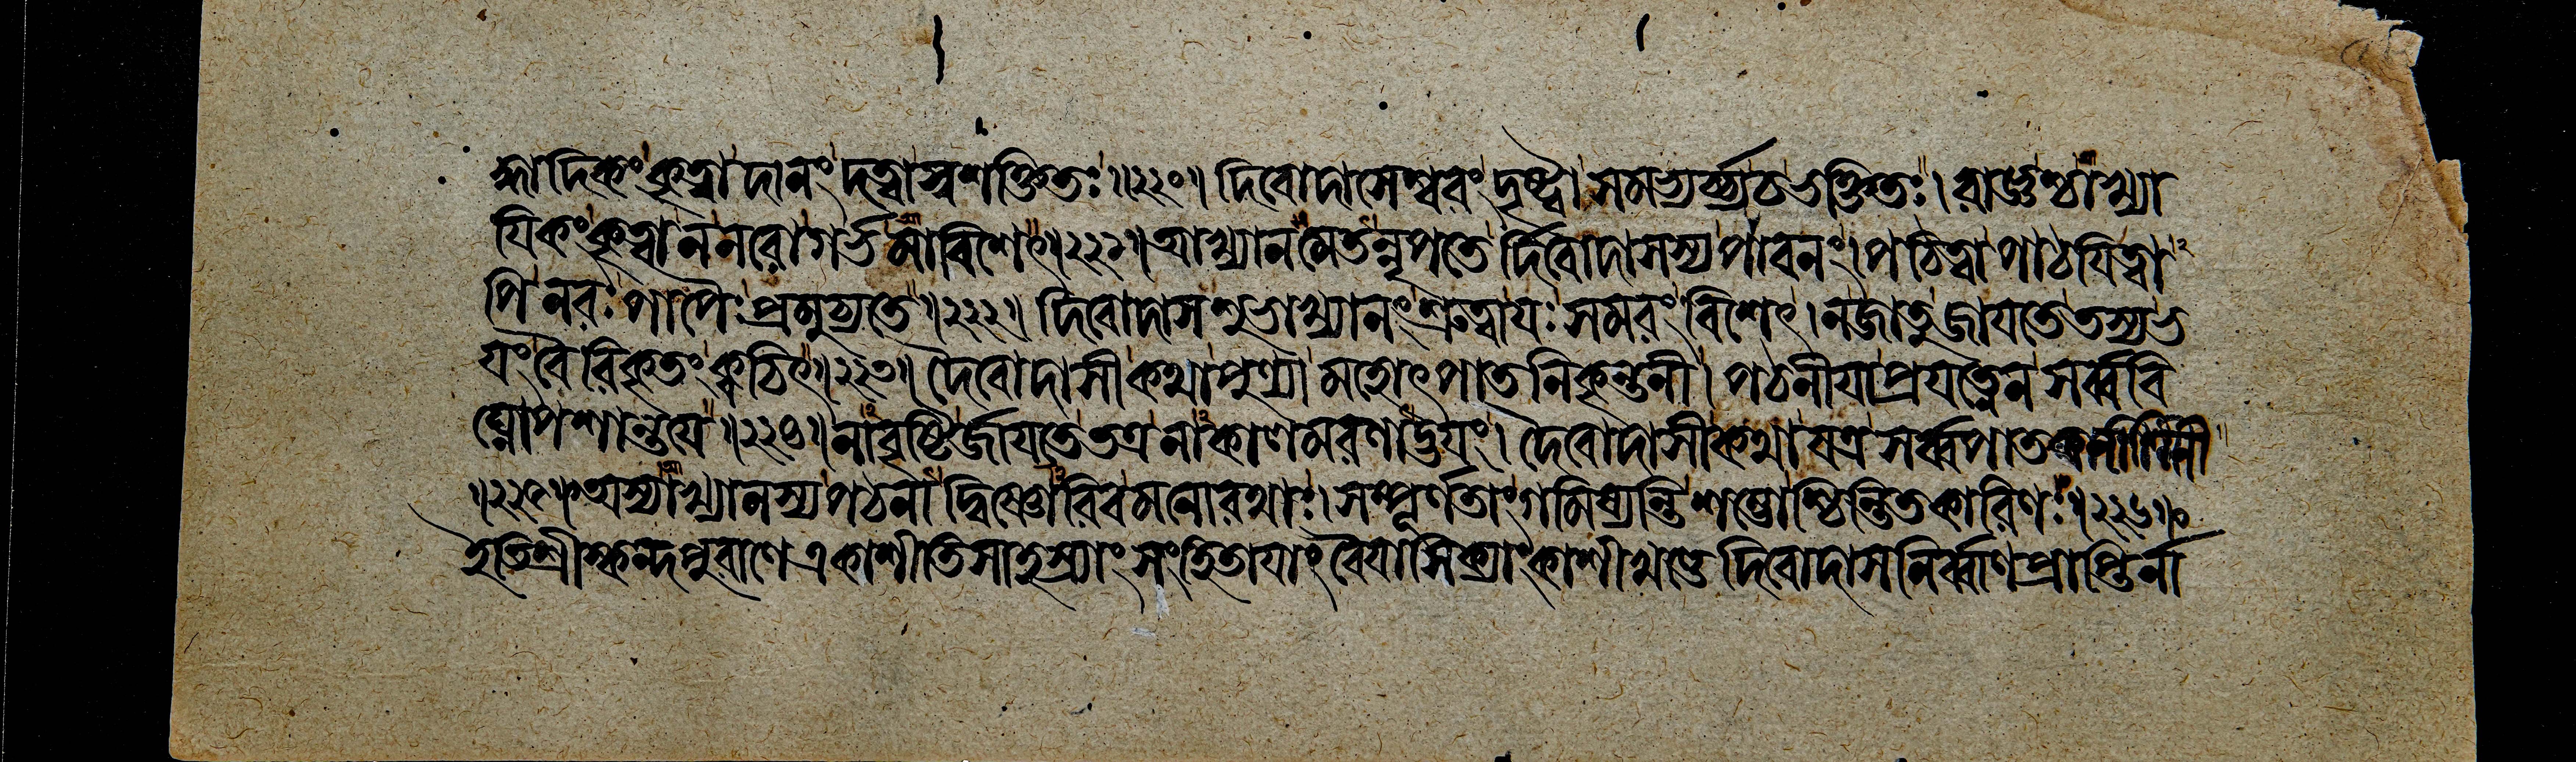 হ্নাদিকং কৃত্বা দানং দত্বা স্বশক্তিতঃ॥২২০॥ দিবোদাসেশ্বরং দৃষ্ট্বা সমভ্যর্চ্য চ ভক্তিতঃ। রাজ্ঞশ্চাখ্যা
যিকাং শ্রুত্বা ন নরো গর্ভমাবিশেৎ॥২২১॥ আখ্যানমেতন্নৃপতে র্দিবোদাসস্য পাবনং। পঠিত্বা পাঠযিত্বা
পি নরঃ পাপৈঃ প্রমুচ্যতে॥২২২॥ দিবোদাসশুভাখ্যানং শ্রুত্বা যঃ সমরং বিশেৎ। ন জাতু জাযতে তস্য ভ
যং বৈরিকৃতং ক্বচিৎ॥২২৩॥ দৈবোদাসী কথা পুণ্যা মহোৎপাতনিকৃন্তনী। পঠনীযা প্রযত্নেন সর্ব্ববি
ঘ্নোপশান্তযে॥২২৪॥ নাবৃষ্টির্জাযতে তত্র নাকালমরণাদ্ভযং। দৈবোদাসী কথা যত্র সর্ব্বপাতকনাশিনী
॥২২৫॥ অস্যাখ্যানস্য পঠনাদ্বিষ্ণোরিব মনোরথাঃ। সম্পূর্ণতাং গমিষ্যন্তি শম্ভোশ্চিন্তিতকারিণঃ॥২২৬॥
ইতি শ্রীস্কন্দপুরাণে একাশীতিসাহস্র্যাং সংহিতাযাং বৈযাসিক্যাং কাশীখণ্ডে দিবোদাসনির্ব্বাণপ্রাপ্তির্না